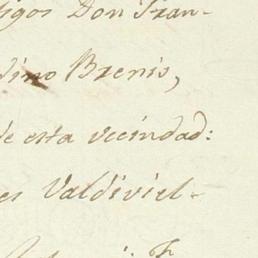 tigos Don Fran-
dino Brenis,
de esta vecindad:
es Valdiviel-